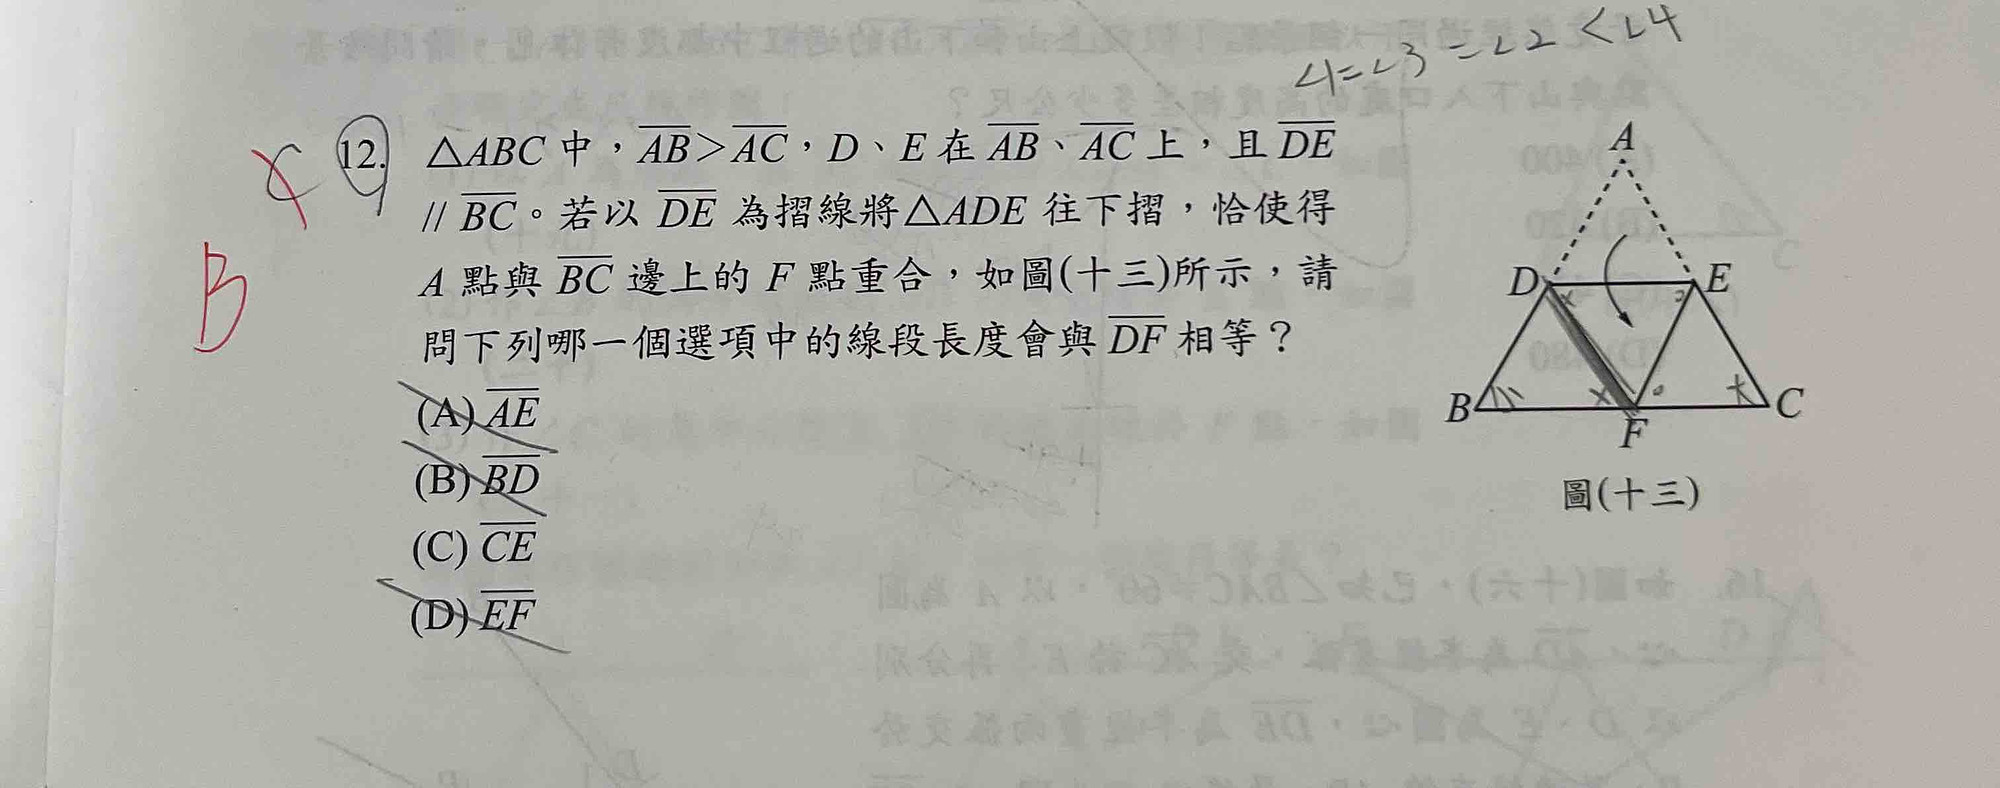 ∠1=∠3=∠2<∠4
C
12. △ABC 中，AB>AC，D、E 在 AB、AC 上，且 DE
// BC。若以 DE 為摺線將△ADE 往下摺，恰使得
A 點與 BC 邊上的 F 點重合，如圖(十三)所示，請
問下列哪一個選項中的線段長度會與 DF 相等？
B
(A) AE
(B) BD
(C) CE
(D) EF
A
D
E
B
F
C
圖(十三)